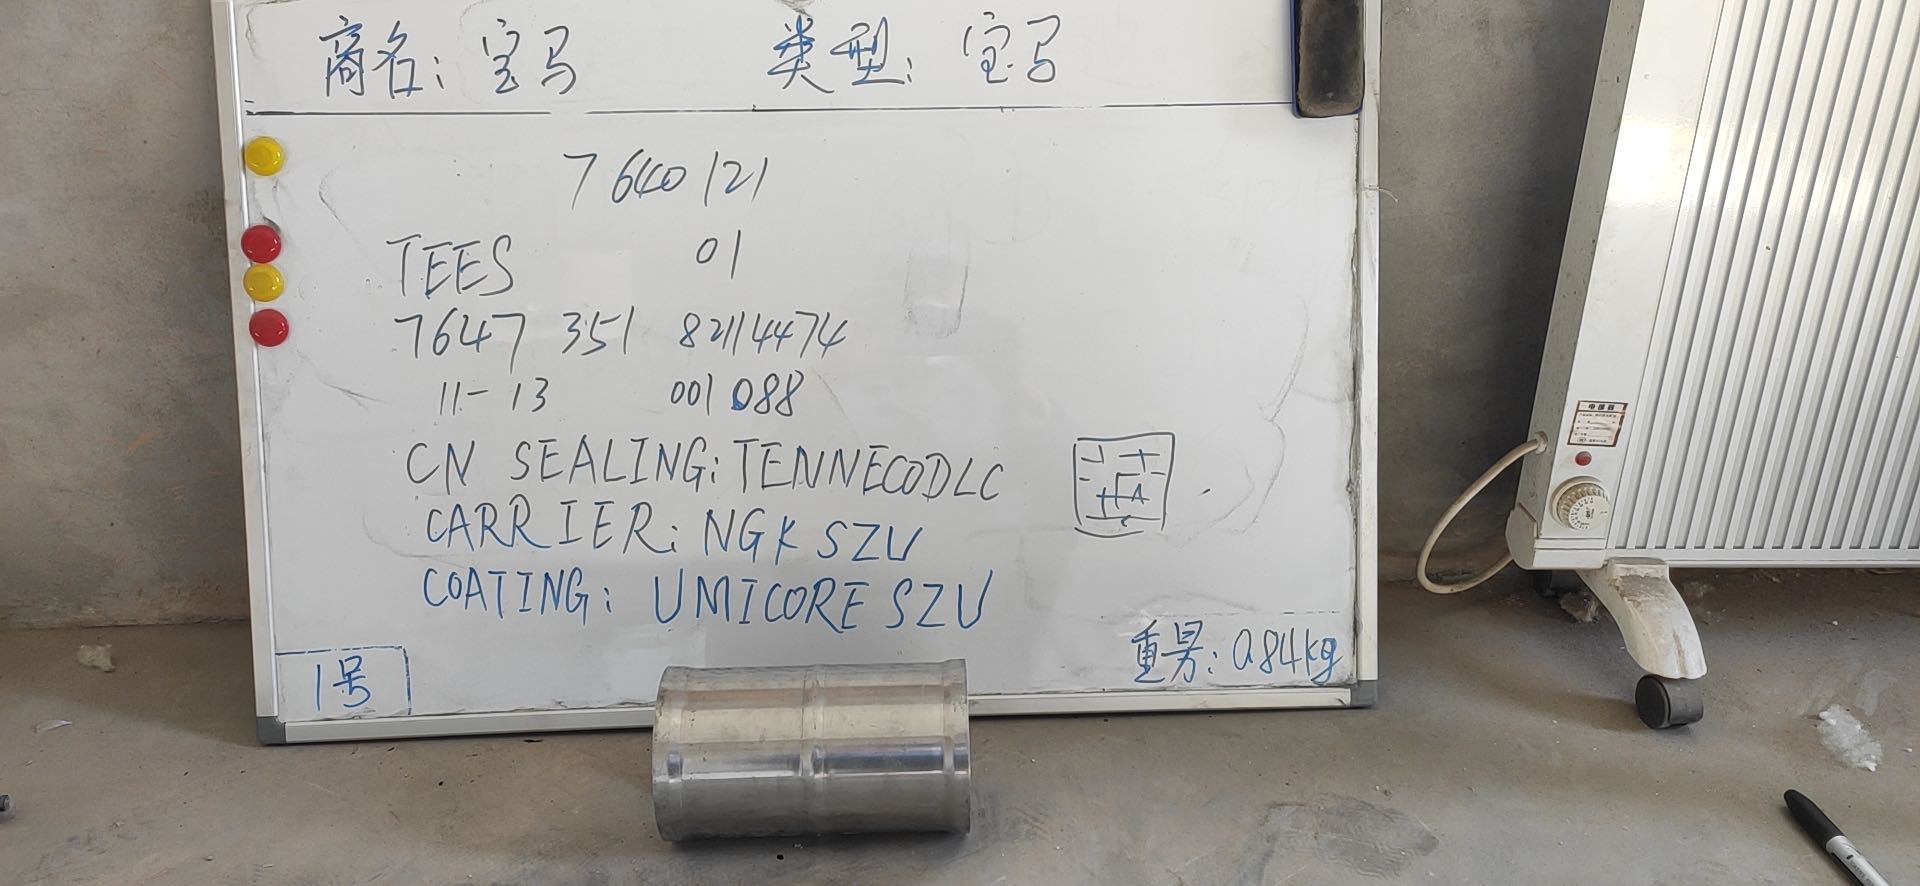 商名：宝马 类型：宝马
7 640 121
TEES 01
7647 351 82114474
11-13 001 088
CN SEALING: TENNECODLC
CARRIER: NGK SZU
COATING: UMICORE SZU
1号
重另：0.84kg